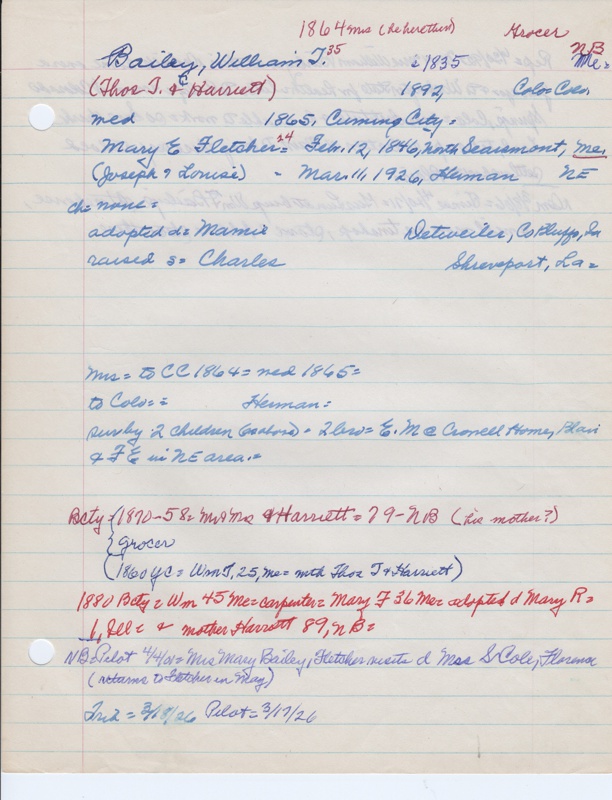 1864 mrs (he here then) Grocer
Bailey, William T. 35 c 1835 NB Me=
(Thos T. & Harriett) 1892, Colo= Colo
med 1865, Cuming City=
Mary E Fletcher= 24 Feb. 12, 1846, North Searsmont, Me,
(Joseph & Louise) - Mar. 11, 1926, Herman NE
ch= none=
adopted d= Mamie Detweiler, Co Bluffs, Ia
raised s= Charles Shreveport, La=
mrs= to CC 1864= med 1865=
to Colo= = Herman=
surv by 2 children (above)= 2 bro= E. M @ Crowell Home, Blair
& F E in NE area.=
Bcty= 1870-58= Mr & Mrs & Harriett= 79- NB (his mother?)
grocer
(1860 YC= Wm T, 25, Me= with Thos T & Harriett)
1880 Bcty= Wm 45 Me= carpenter= Mary F 36 Me= adopted d Mary R=
1, Ill= & mother Harriett 89, NB=
NB= Pilot 4/4/01= Mrs Mary Bailey, Fletcher visits d Mrs S Cole, Florence
(returns to Fletcher in May)
Trib= 3/18/26 Pilot= 3/17/26